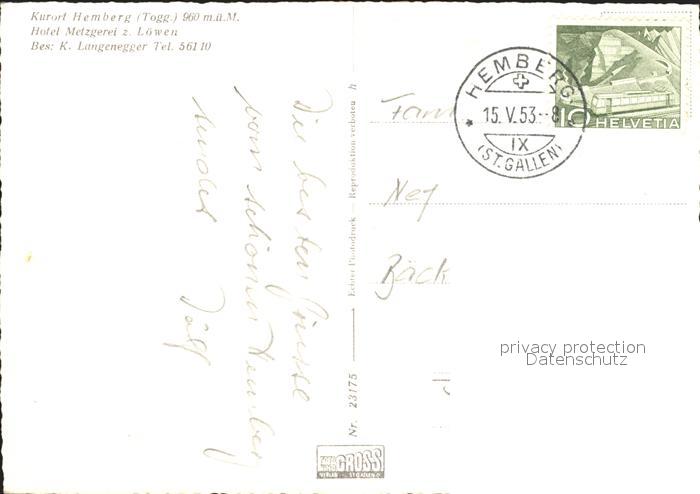 Kurort Hemberg (Togg.) 960 m.ü.M.
Hotel Metzgerei z. Löwen
Bes: K. Langenegger Tel. 561 10
Die besten Grüsse
vom schönen Hemberg
sendet
Nr. 23175 Echter Photodruck — Reproduktion verboten h
HEMBERG
15.V.53.-8
IX
(ST.GALLEN)
10 HELVETIA
Fam
Nef
Bäck
privacy protection
Datenschutz
GROSS
VERLAG ST.GALLEN